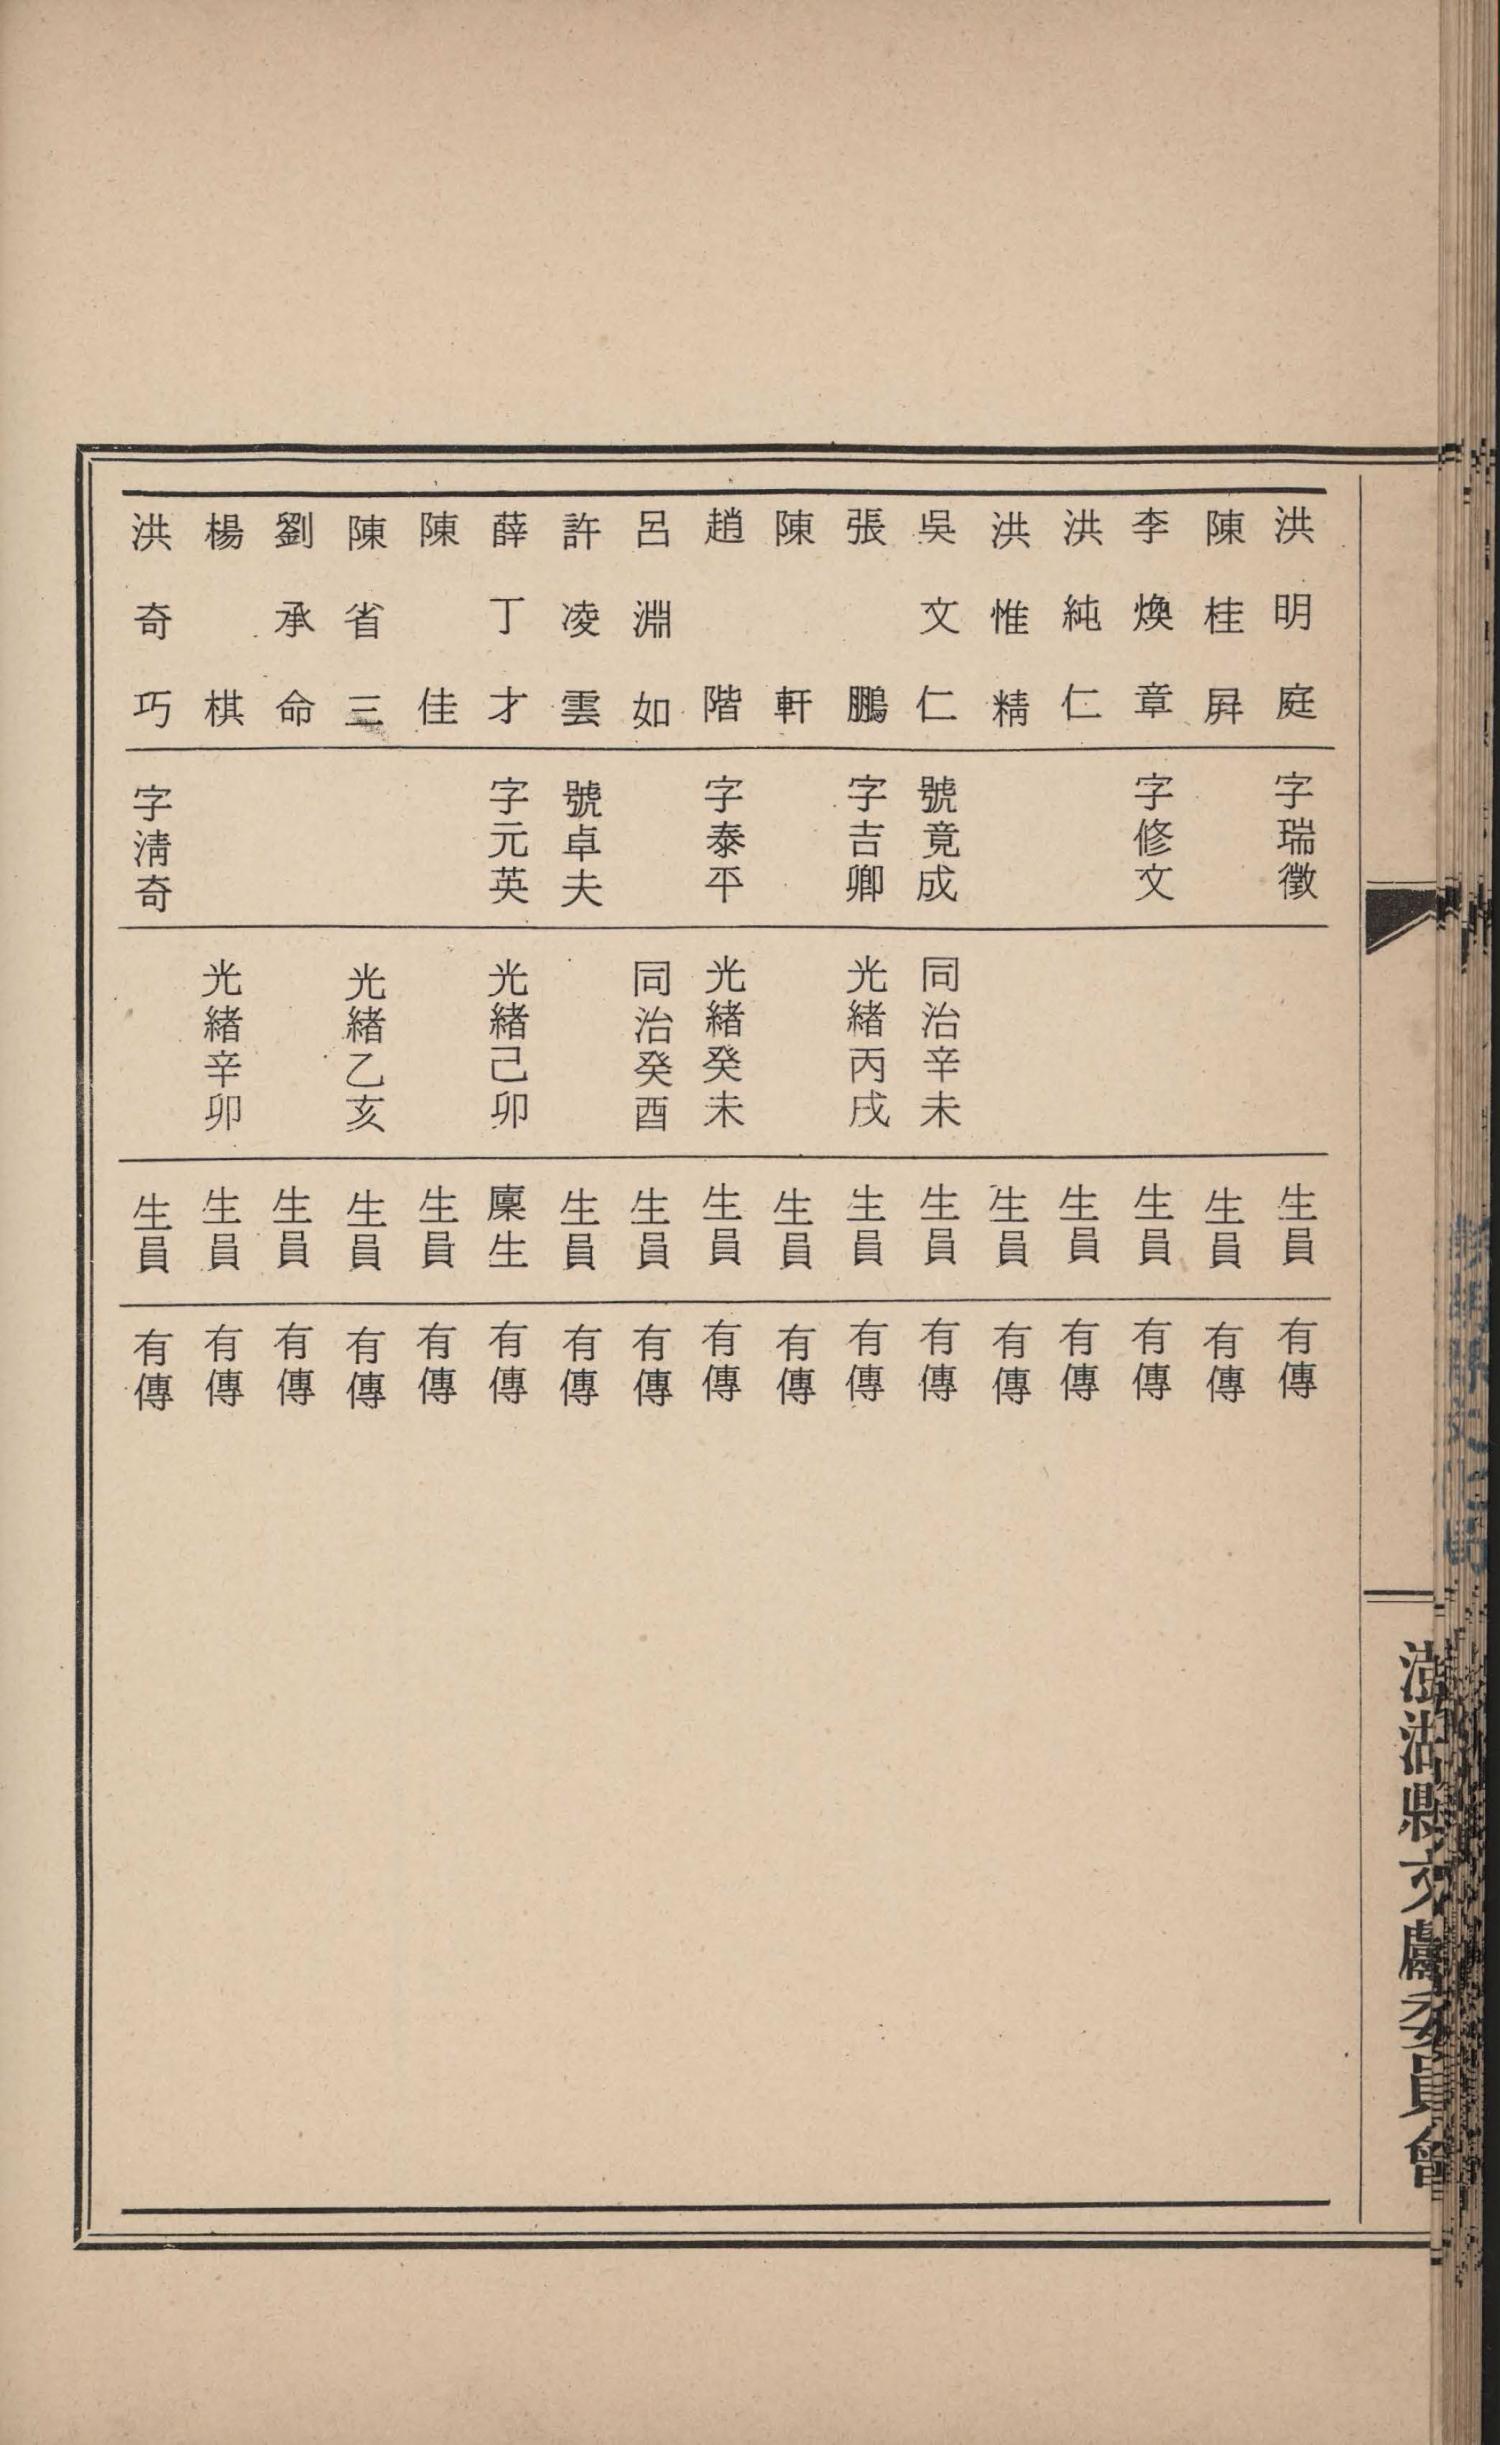 洪明庭 字瑞徵 生員 有傳
陳桂屛 生員 有傳
李煥章 字修文 生員 有傳
洪純仁 生員 有傳
洪惟精 生員 有傳
吳文仁 號竟成 同治辛未 生員 有傳
張鵬 字吉卿 光緒丙戌 生員 有傳
陳軒 生員 有傳
趙階 字泰平 光緒癸未 生員 有傳
呂淵如 同治癸酉 生員 有傳
許凌雲 號卓夫 生員 有傳
薛丁才 字元英 光緒己卯 廩生 有傳
陳佳 生員 有傳
陳省三 光緒乙亥 生員 有傳
劉承命 生員 有傳
楊棋 光緒辛卯 生員 有傳
洪奇巧 字淸奇 生員 有傳
澎湖縣文獻委員會